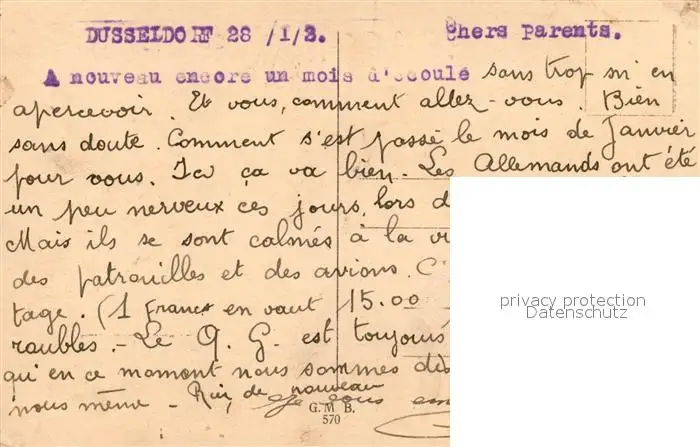 DUSSELDORF 28 /1/3. Chers parents.
A nouveau encore un mois d'ecoulé sans trop m'en
apercevoir. Et vous, comment allez-vous. Bien
sans doute. Comment s'est passé le mois de Janvier
pour vous. Ici ça va bien. Les Allemands ont été
un peu nerveux ces jours, lors d
Mais ils se sont calmés à la v
des patrouilles et des avions. C'
tage. (1 franc en vaut 15.00
raubles. - Le Q. G. est toujours
qu'en ce moment nous sommes
nous même - Rien de nouveau
Je vous em
G. M. B.
570
privacy protection
Datenschutz